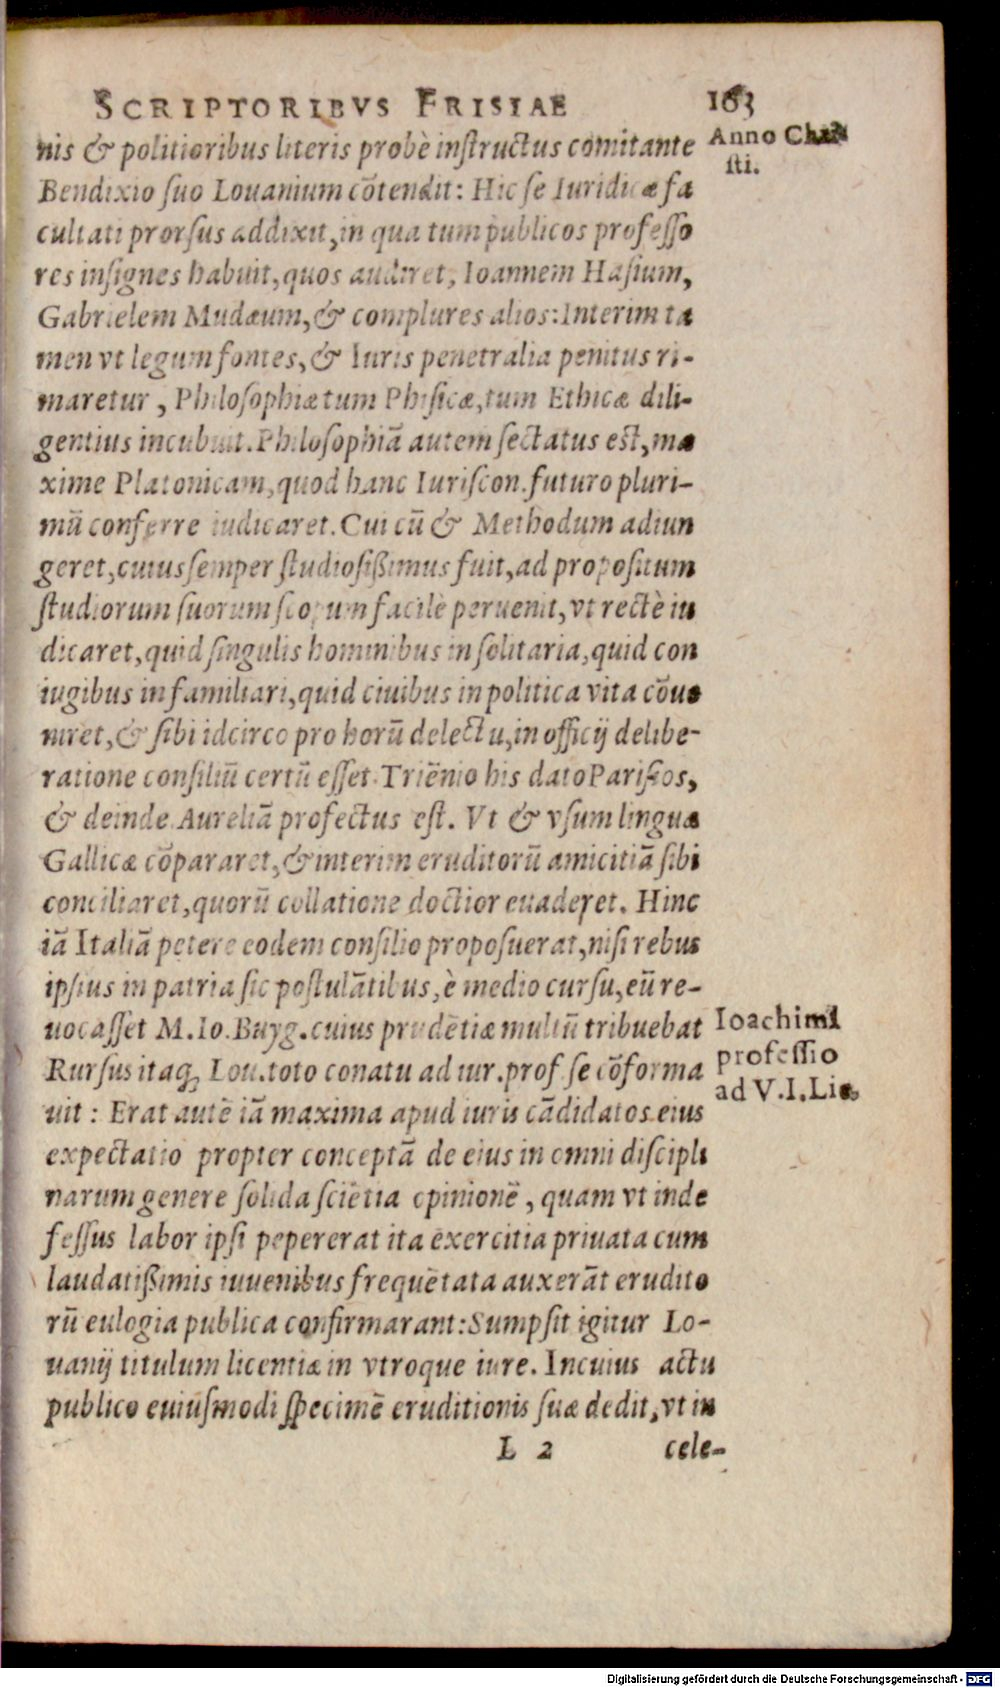 SCRIPTORIBVS FRISIAE 163
Anno Chri
sti.
nis & politioribus literis probè instructus comitante
Bendixio suo Louanium cōtendit: Hic se Iuridicæ fa
cultati prorsus addixit, in qua tum publicos professo
res insignes habuit, quos audiret, Ioannem Hasium,
Gabrielem Mudæum, & complures alios: Interim ta
men vt legum fontes, & Iuris penetralia penitus ri-
maretur, Philosophiæ tum Phisicæ, tum Ethicæ dili-
gentius incubuit. Philosophiā autem sectatus est, ma
xime Platonicam, quod hanc Iuriscon. futuro pluri-
mū conferre iudicaret. Cui cū & Methodum adiun
geret, cuius semper studiosißimus fuit, ad propositum
studiorum suorum scopum facilè peruenit, vt rectè iu
dicaret, quid singulis hominibus in solitaria, quid con
iugibus in familiari, quid ciuibus in politica vita cōue
niret, & sibi idcirco pro horū delectu, in officij delibe-
ratione consiliū certū esset. Triēnio his dato Parisios,
& deinde Aureliā profectus est. Vt & vsum linguæ
Gallicæ cōpararet, & interim eruditorū amicitiā sibi
conciliaret, quorū collatione doctior euaderet. Hinc
iā Italiā petere eodem consilio proposuerat, nisi rebus
ipsius in patria sic postulātibus, è medio cursu, eū re-
uocasset M. Io. Buyg. cuius prudētiæ multū tribuebat
Rursus itaq; Lou. toto conatu ad iur. prof. se cōforma
uit: Erat autē iā maxima apud iuris cādidatos eius
expectatio propter conceptā de eius in omni discipli
narum genere solida sciētia opinionē, quam vt inde
fessus labor ipsi pepererat ita exercitia priuata cum
laudatißimis iuuenibus frequētata auxerāt erudito
rū eulogia publica confirmarant: Sumpsit igitur Lo-
uanij titulum licentiæ in vtroque iure. In cuius actu
publico euiusmodi specimē eruditionis suæ dedit, vt in
Ioachimi
professio
ad V.I.Lic.
L 2 cele-
Digitalisierung gefördert durch die Deutsche Forschungsgemeinschaft - DFG